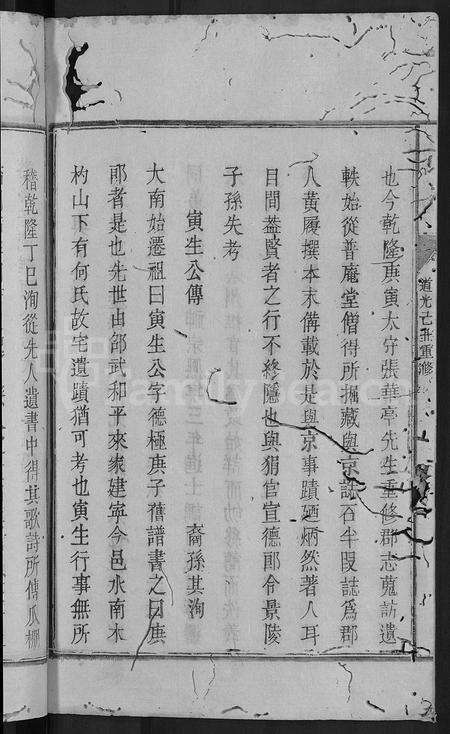 道光己丑重修
也今乾隆庚寅太守張華亭先生重修郡志蒐訪遺
軼始從普庵堂僧得所掘藏與京誌石半段誌爲郡
人黃履撰本末備載於是與京事蹟廼炳然著人耳
目間葢賢者之行不終隱也與狷官宣德郎令景陵
子孫失考
寅生公傳
裔孫其洵
大南始遷祖曰寅生公字德極庚子舊譜書之曰庚
郎者是也先世由邵武和平來家建寧今邑水南木
杓山下有何氏故宅遺蹟猶可考也寅生行事無所
稽乾隆丁巳洵從先人遺書中得其歌詩所傳瓜棚
familysearch